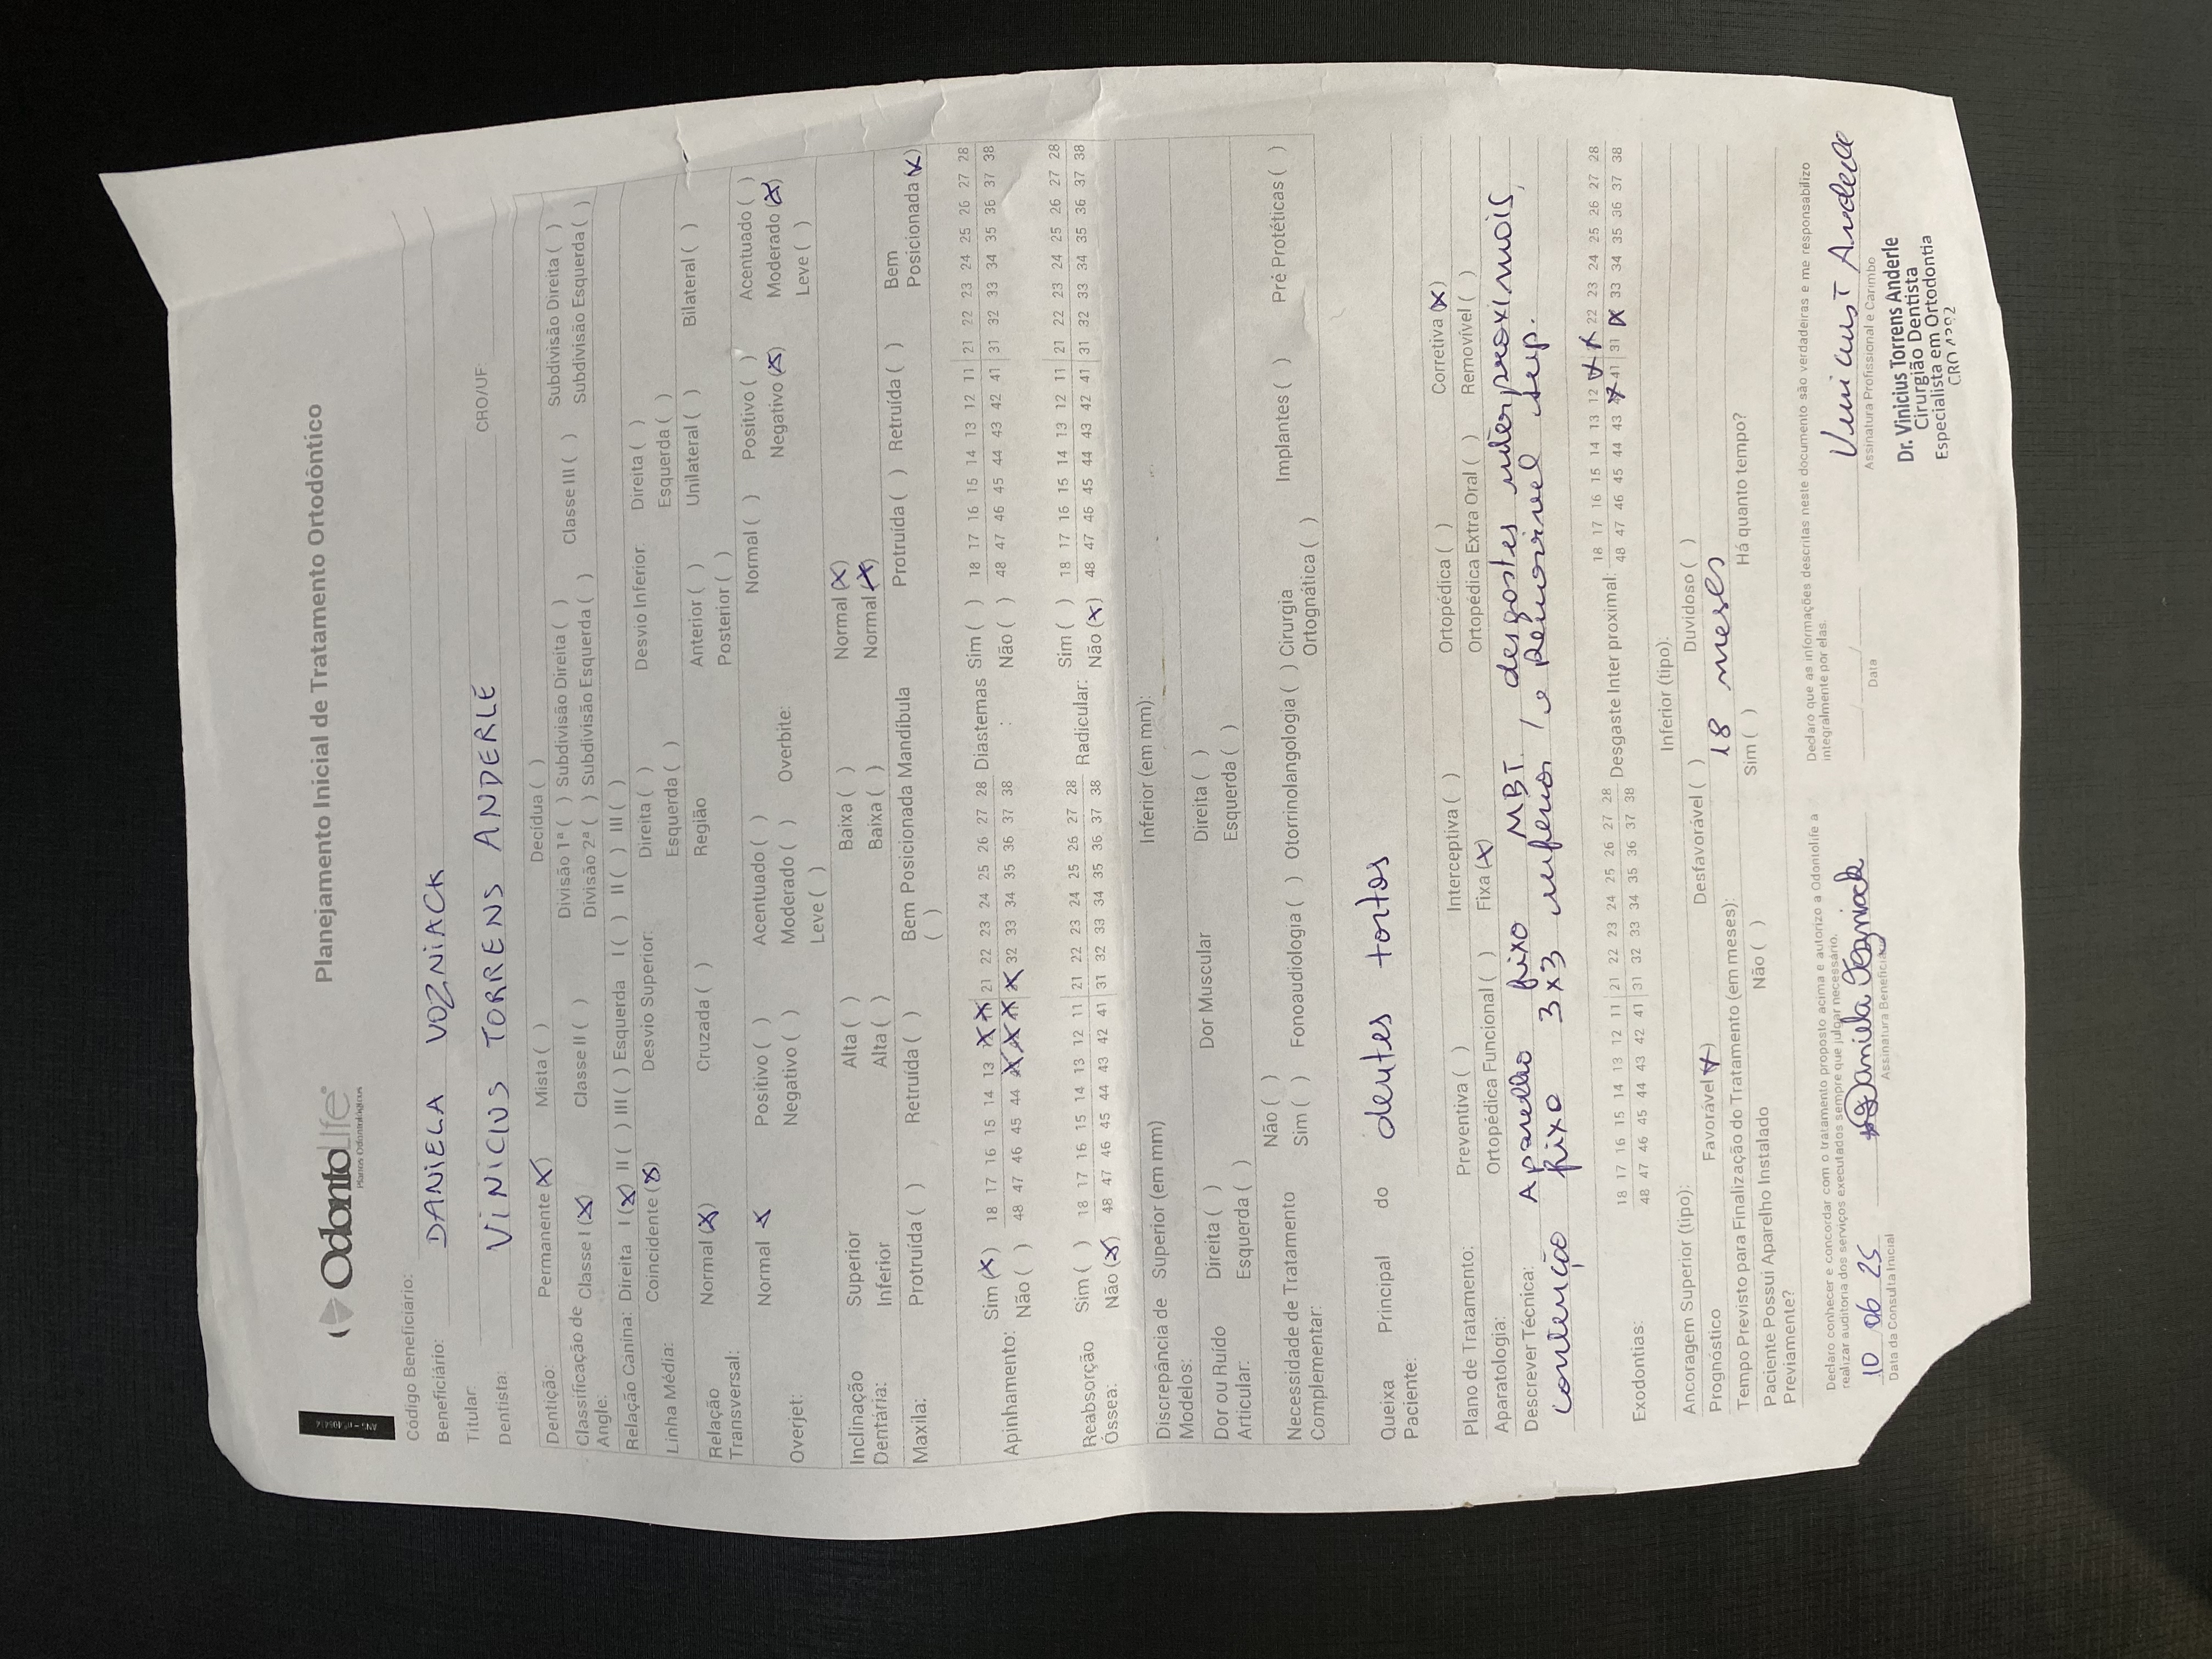 OdontoLife
Planos Odontológicos
Planejamento Inicial de Tratamento Ortodôntico
Código Beneficiário:
Beneficiário: DANIELA VOZNIACK
Titular:
Dentista: VINICIUS TORRENS ANDERLE CRO/UF:
Dentição: Permanente (X) Mista ( ) Decídua ( )
Classificação de Angle: Classe I (X) Classe II ( ) Divisão 1ª ( ) Subdivisão Direita ( ) Classe III ( ) Subdivisão Direita ( )
Divisão 2ª ( ) Subdivisão Esquerda ( ) Subdivisão Esquerda ( )
Relação Canina: Direita I (X) II ( ) III ( ) Esquerda I ( ) II ( ) III ( )
Linha Média: Coincidente (X) Desvio Superior: Direita ( ) Desvio Inferior: Direita ( )
Esquerda ( ) Esquerda ( )
Relação Transversal: Normal (X) Cruzada ( ) Região Anterior ( ) Unilateral ( ) Bilateral ( )
Posterior ( )
Overjet: Normal X Positivo ( ) Acentuado ( ) Overbite: Normal ( ) Positivo ( ) Acentuado ( )
Negativo ( ) Moderado ( ) Negativo (X) Moderado (X)
Leve ( ) Leve ( )
Inclinação Dentária: Superior Alta ( ) Baixa ( ) Normal (X)
Inferior Alta ( ) Baixa ( ) Normal (X)
Maxila: Protruída ( ) Retruída ( ) Bem Posicionada ( ) Mandíbula Protruída ( ) Retruída ( ) Bem Posicionada (X)
Apinhamento: Sim (X) 18 17 16 15 14 13 X X 21 22 23 24 25 26 27 28 Diastemas : Sim ( ) 18 17 16 15 14 13 12 11 21 22 23 24 25 26 27 28
Não ( ) 48 47 46 45 44 X X X X 32 33 34 35 36 37 38 Não ( ) 48 47 46 45 44 43 42 41 31 32 33 34 35 36 37 38
Reabsorção Óssea: Sim ( ) 18 17 16 15 14 13 12 11 21 22 23 24 25 26 27 28 Radicular: Sim ( ) 18 17 16 15 14 13 12 11 21 22 23 24 25 26 27 28
Não (X) 48 47 46 45 44 43 42 41 31 32 33 34 35 36 37 38 Não (X) 48 47 46 45 44 43 42 41 31 32 33 34 35 36 37 38
Discrepância de Modelos: Superior (em mm) Inferior (em mm):
Dor ou Ruído Articular: Direita ( ) Dor Muscular Direita ( )
Esquerda ( ) Esquerda ( )
Necessidade de Tratamento Complementar: Não ( )
Sim ( ) Fonoaudiologia ( ) Otorrinolangologia ( ) Cirurgia Ortognática ( ) Implantes ( ) Pré Protéticas ( )
Queixa Principal do Paciente: dentes tortos
Plano de Tratamento: Preventiva ( ) Interceptiva ( ) Ortopédica ( ) Corretiva (X)
Aparatologia: Ortopédica Funcional ( ) Fixa (X) Ortopédica Extra Oral ( ) Removível ( )
Descrever Técnica: Aparelho fixo MBT. desgastes interproximais,
contenção fixo 3x3 inferior e Removivel sup.
Exodontias: 18 17 16 15 14 13 12 11 21 22 23 24 25 26 27 28 Desgaste Inter proximal: 18 17 16 15 14 13 12 X X 22 23 24 25 26 27 28
48 47 46 45 44 43 42 41 31 32 33 34 35 36 37 38 48 47 46 45 44 43 X 41 31 X 33 34 35 36 37 38
Ancoragem Superior (tipo): Inferior (tipo):
Prognóstico Favorável X Desfavorável ( ) Duvidoso ( )
Tempo Previsto para Finalização do Tratamento (em meses): 18 meses
Paciente Possui Aparelho Instalado Previamente? Não ( ) Sim ( ) Há quanto tempo?
Declaro conhecer e concordar com o tratamento proposto acima e autorizo a Odontolife a
realizar auditoria dos serviços executados sempre que julgar necessário.
Declaro que as informações descritas neste documento são verdadeiras e me responsabilizo
integralmente por elas.
10 06 25
Data da Consulta Inicial
Assinatura Beneficiário
Data
Vinicius T Anderle
Assinatura Profissional e Carimbo
Dr. Vinicius Torrens Anderle
Cirurgião Dentista
Especialista em Ortodontia
CRO